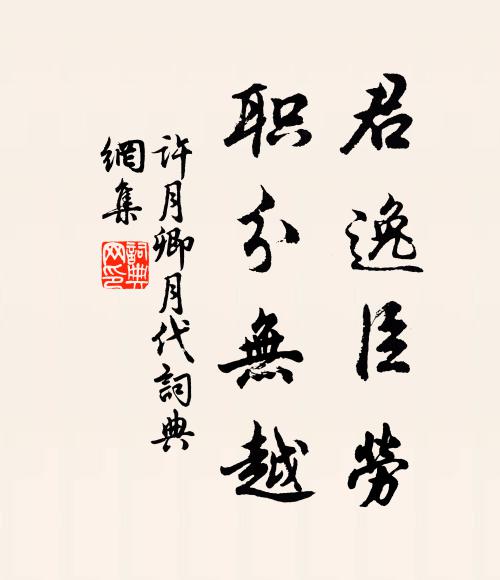 君逸臣勞
职分無越
许月卿月代詞典
網集
詞典
网印